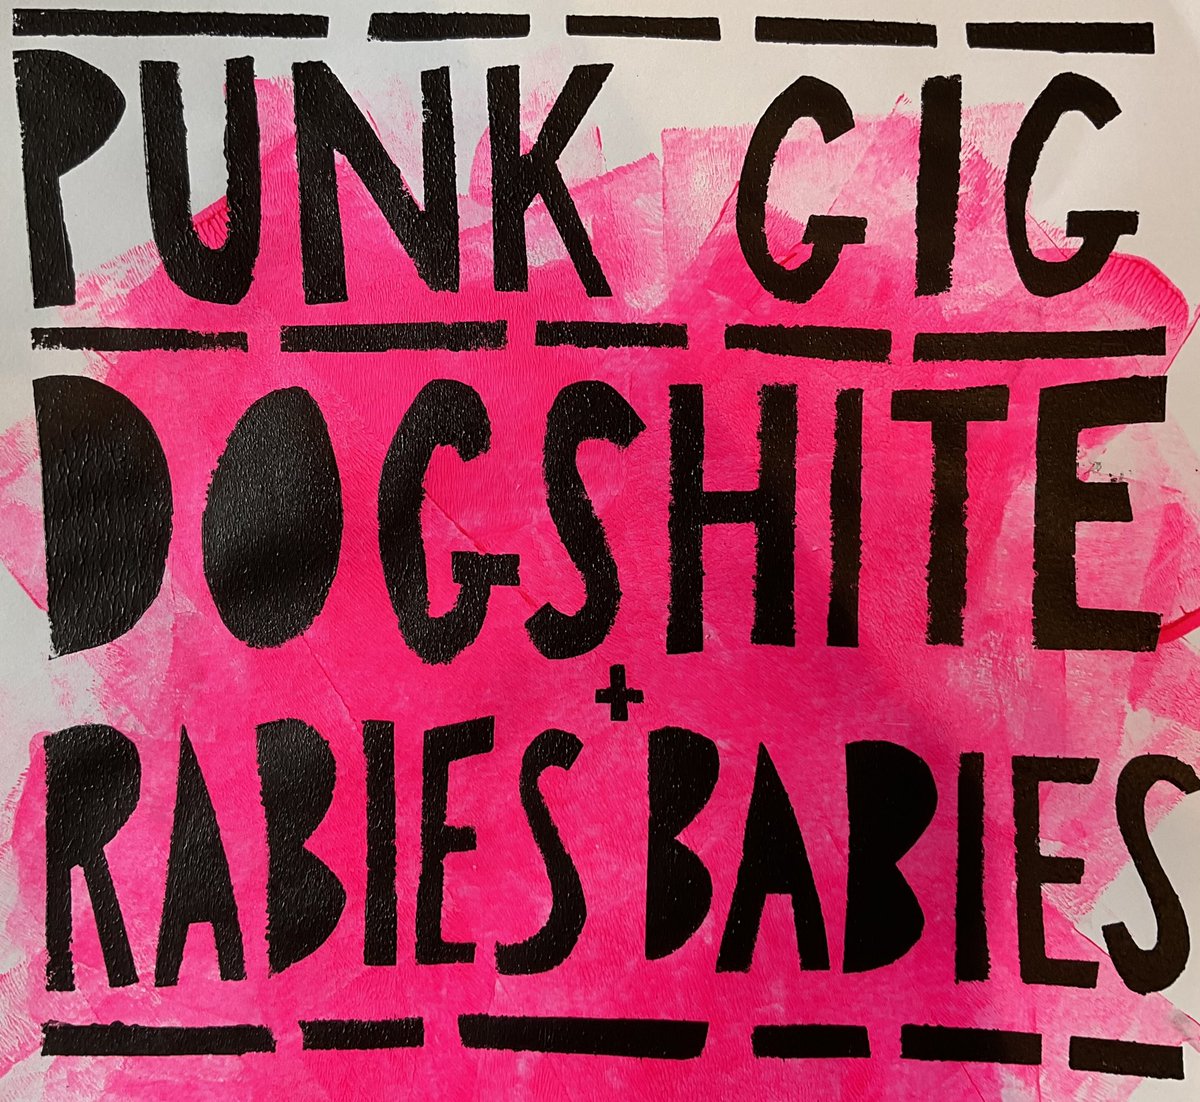 PUNK GIG
DOGSHITE
+
RABIES BABIES